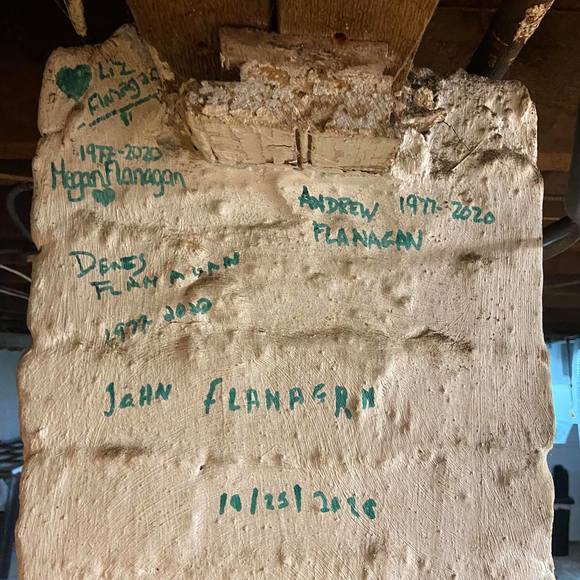 LIZ
FLANAGAN
1977-2020
Megan Flanagan
ANDREW 1977-2020
FLANAGAN
DENIS
FLANAGAN
1977-2020
JOHN FLANAGAN
10/25/2020